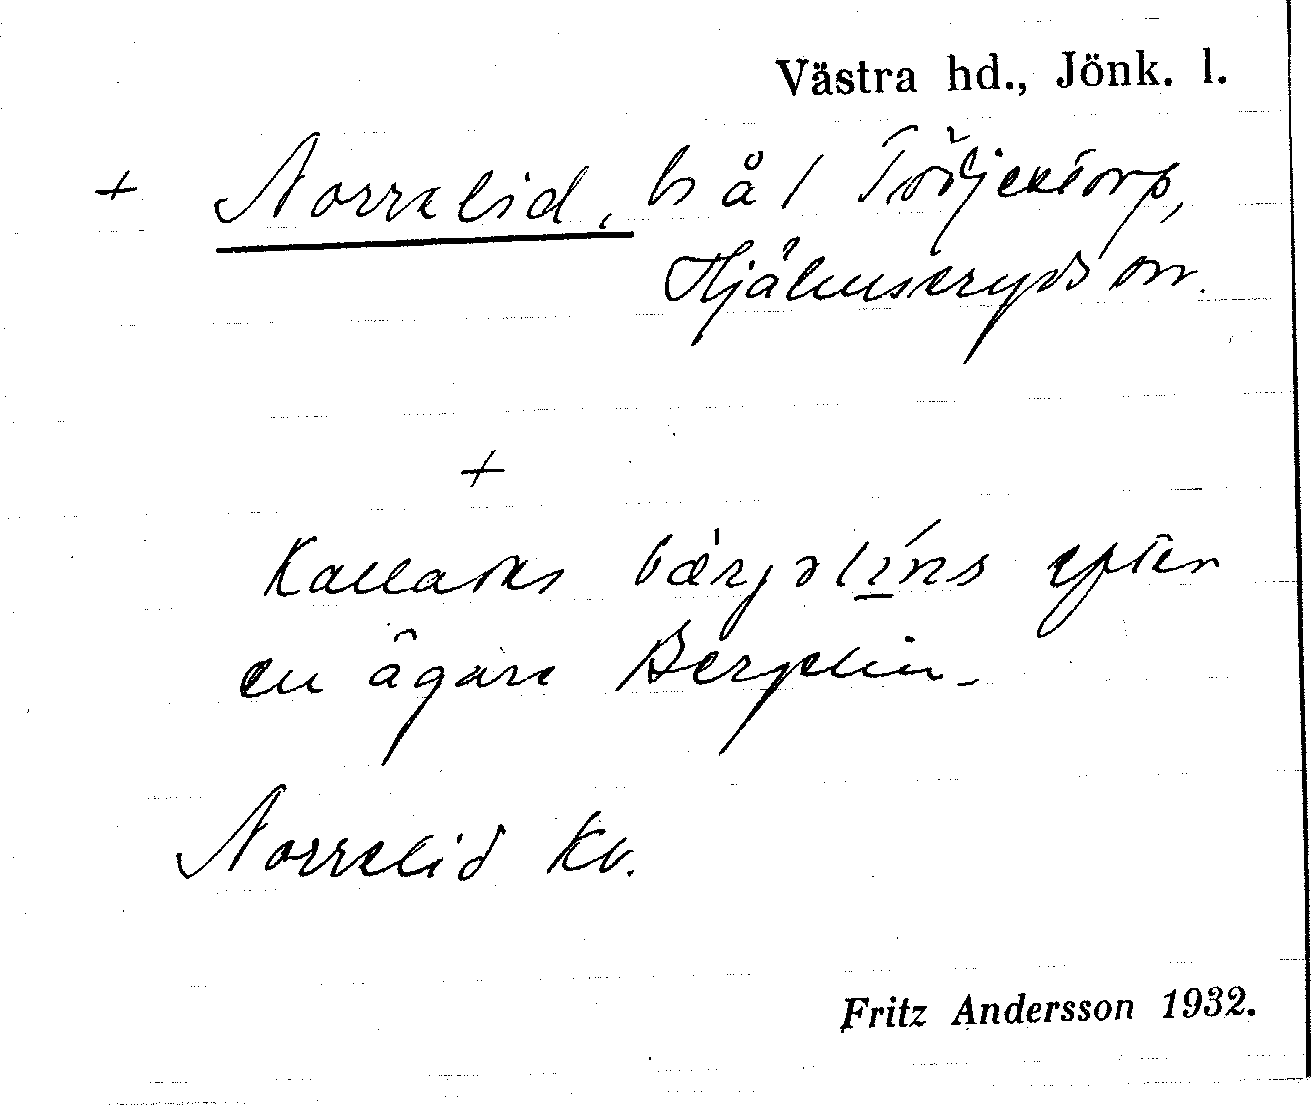 Västra hd., Jönk. l.
+ Norrelid, b å l Töljestorp,
Hjälmseryds sn.
+
Kallades bærjəlíns efter
en ägare Bergelin.
Norrelid Kv.
Fritz Andersson 1932.